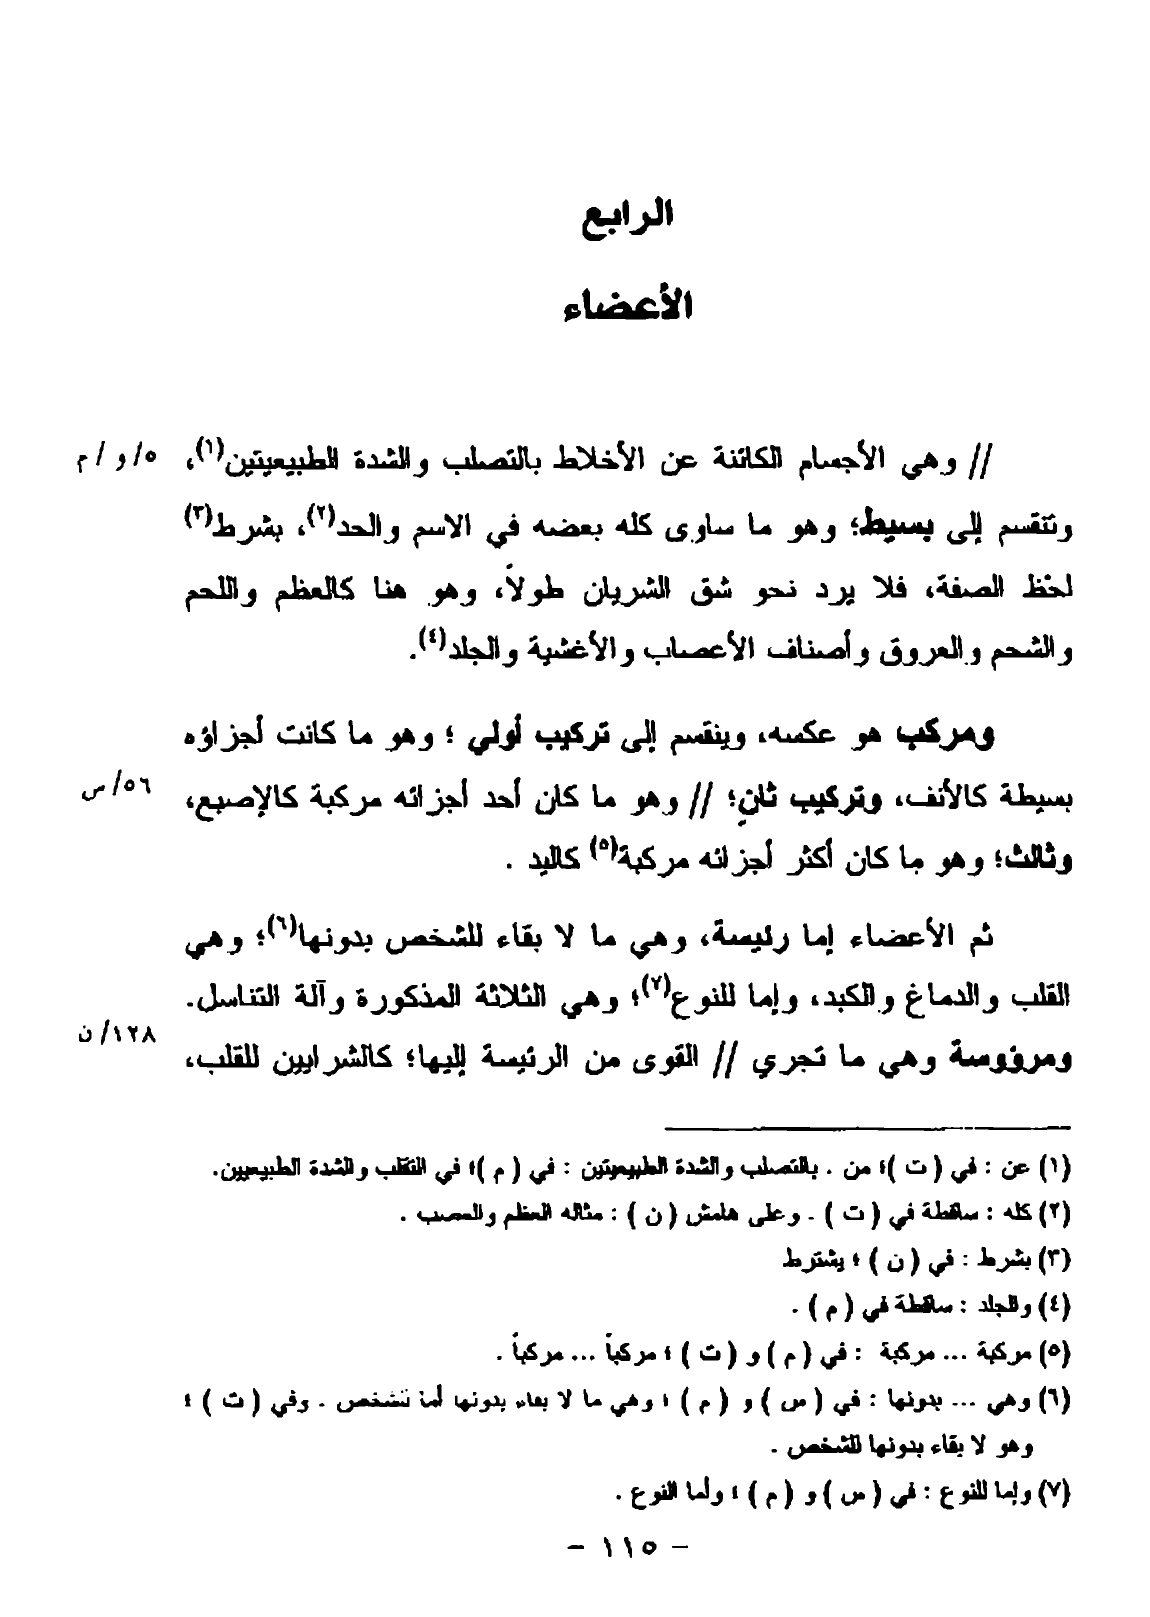 الرابع
الأعضاء
// وهي الأجسام الكائنة عن الأخلاط بالتصلب والشدة الطبيعيتين(١)، ٥/و/م
وتتقسم إلى بسيط؛ وهو ما ساوى كله بعضه في الاسم والحد(٢)، بشرط(٣)
لحْظ الصفة، فلا يرد نحو شق الشريان طولاً، وهو هنا كالعظم واللحم
والشحم والعروق وأصناف الأعصاب والأغشية والجلد(٤).
ومركب هو عكسه، وينقسم إلى تركيب أولي؛ وهو ما كانت أجزاؤه
بسيطة كالأنف، وتركيب ثانٍ؛ // وهو ما كان أحد أجزائه مركبة كالإصبع، ٥٦/ص
وثالث؛ وهو ما كان أكثر أجزائه مركبة(٥) كاليد .
ثم الأعضاء إما رئيسة، وهي ما لا بقاء للشخص بدونها(٦)؛ وهي
القلب والدماغ والكبد، وإما للنوع(٧)؛ وهي الثلاثة المذكورة وآلة التناسل.
ومرؤوسة وهي ما تجري // القوى من الرئيسة إليها؛ كالشرايين للقلب، ١٢٨/ن
(١) عن : في ( ت )؛ من . بالتصلب والشدة الطبيعيتين : في ( م )؛ في التقلب والشدة الطبيعيين.
(٢) كله : ساقطة في ( ت ) . وعلى هامش ( ن ) : مثاله العظم والعصب .
(٣) بشرط : في ( ن ) ؛ يشترط
(٤) والجلد : ساقطة في ( م ) .
(٥) مركبة ... مركبة : في ( م ) و ( ت ) ؛ مركباً ... مركباً .
(٦) وهي ... بدونها : في ( س ) و ( م ) ؛ وهي ما لا بقاء بدونها أما للشخص . وفي ( ت ) ؛
وهو لا بقاء بدونها للشخص .
(٧) وإما للنوع : في ( س ) و ( م ) ؛ وأما النوع .
- ١١٥ -